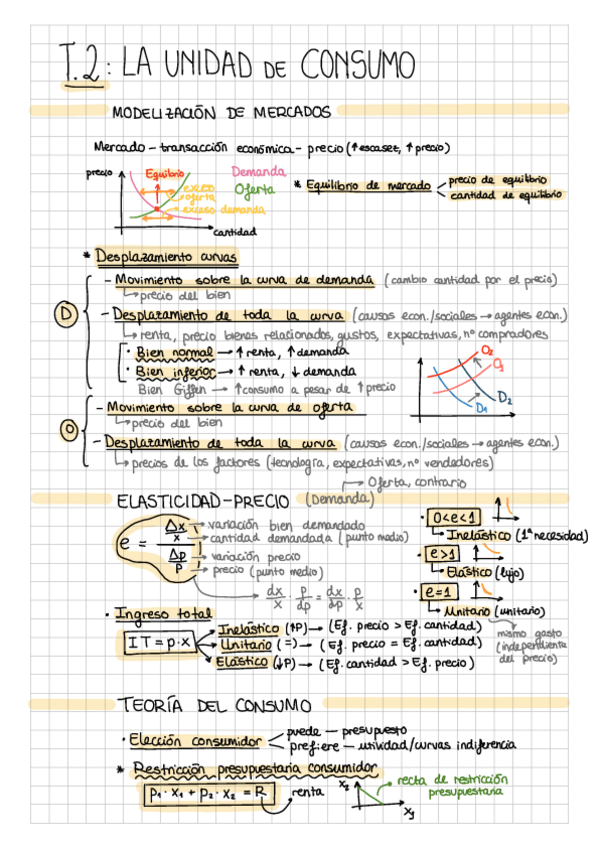 T.2: LA UNIDAD DE CONSUMO
MODELIZACIÓN DE MERCADOS
Mercado - transacción económica - precio (↑escasez, ↑ precio)
precio
Equilibrio
Demanda
Oferta
exceso oferta
exceso demanda
cantidad
* Equilibrio de mercado
precio de equilibrio
cantidad de equilibrio
* Desplazamiento curvas
D
- Movimiento sobre la curva de demanda (cambio cantidad por el precio)
precio del bien
- Desplazamiento de toda la curva (causas econ./sociales → agentes econ.)
renta, precio bienes relacionados, gustos, expectativas, nº compradores
· Bien normal → ↑ renta, ↑ demanda
· Bien inferior → ↑ renta, ↓ demanda
Bien Giffen → ↑consumo a pesar de ↑ precio
O₂
O₁
D₁
D₂
O
- Movimiento sobre la curva de oferta
precio del bien
- Desplazamiento de toda la curva (causas econ./sociales → agentes econ.)
precios de los factores (tecnología, expectativas, nº vendedores)
Oferta, contrario
ELASTICIDAD-PRECIO (Demanda)
e = Δx/x / Δp/p
variación bien demandado
cantidad demandada (punto medio)
variación precio
precio (punto medio)
dx/x · p/dp = dx/dp · p/x
· 0<e<1
Inelástico (1ª necesidad)
· e>1
Elástico (lujo)
· e=1
Unitario (unitario)
mismo gasto
(independiente
del precio)
· Ingreso total
IT = p·x
Inelástico (↑P) → (Ef. precio > Ef. cantidad)
Unitario (=) → (Ef. precio = Ef. cantidad)
Elástico (↓P) → (Ef. cantidad > Ef. precio)
TEORÍA DEL CONSUMO
· Elección consumidor
puede - presupuesto
prefiere - utilidad/curvas indiferencia
* Restricción presupuestaria consumidor
p₁ · x₁ + p₂ · x₂ = R
renta
x₂
x₁
recta de restricción
presupuestaria